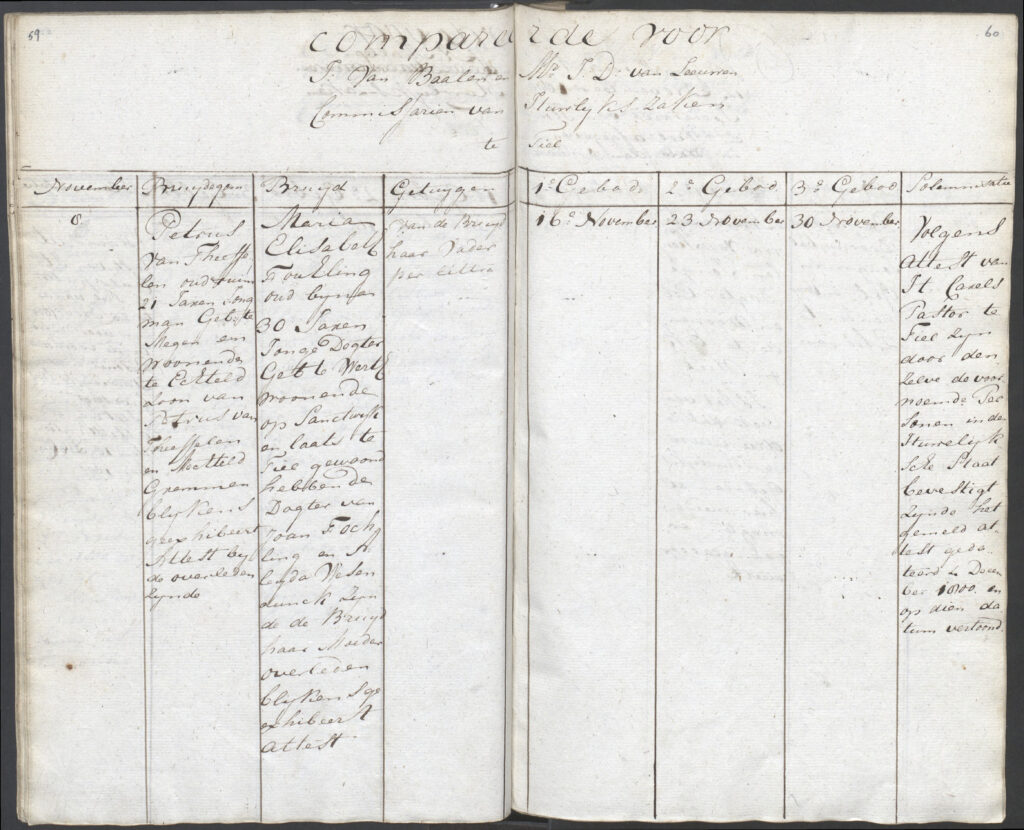 59
60
compareerde voor
J: Van Baalen en Mr J: D: van Leeuwen
Commissarien van Huwlyks Zaken
te Tiel
November
8
Bruydegom
Petrus
van Theffe
len oud ruim
21 Jaren Jong
man Geb: te
Megen en
woonende
te Echteld
Zoon van
Petrus van
Theffelen
en Mechteld
Gremmen
blykens
geexhibeert
Attest bey
de overleden
zynde
Bruyd
Maria
Elisabeth
oud byna
30 Jaren
Jonge Dogter
Geb: te Werth
woonende
op Sandwyk
en laats te
Tiel gewoond
hebbende
Dogter van
Joan Foch
ling en A
leyda Wesen
dunck zyn
de de Bruyd
haar Moeder
overleden
blykens ge
exhibeert
attest
Getuygen
van de Bruyd
haar Vader
per littra
1e Gebod
16e November
2e Gebod
23 November
3e Gebod
30 November
Solemnisatie
Volgens
attest van
H. Carels
Pastor te
Tiel zyn
door den
zelve de voor
noemde Per
sonen in de
Huwelyk
sche Staat
bevestigt
zynde het
gemeld at
test geda
teerd 2 Decem
ber 1800 en
op dien da
tum vertoond.